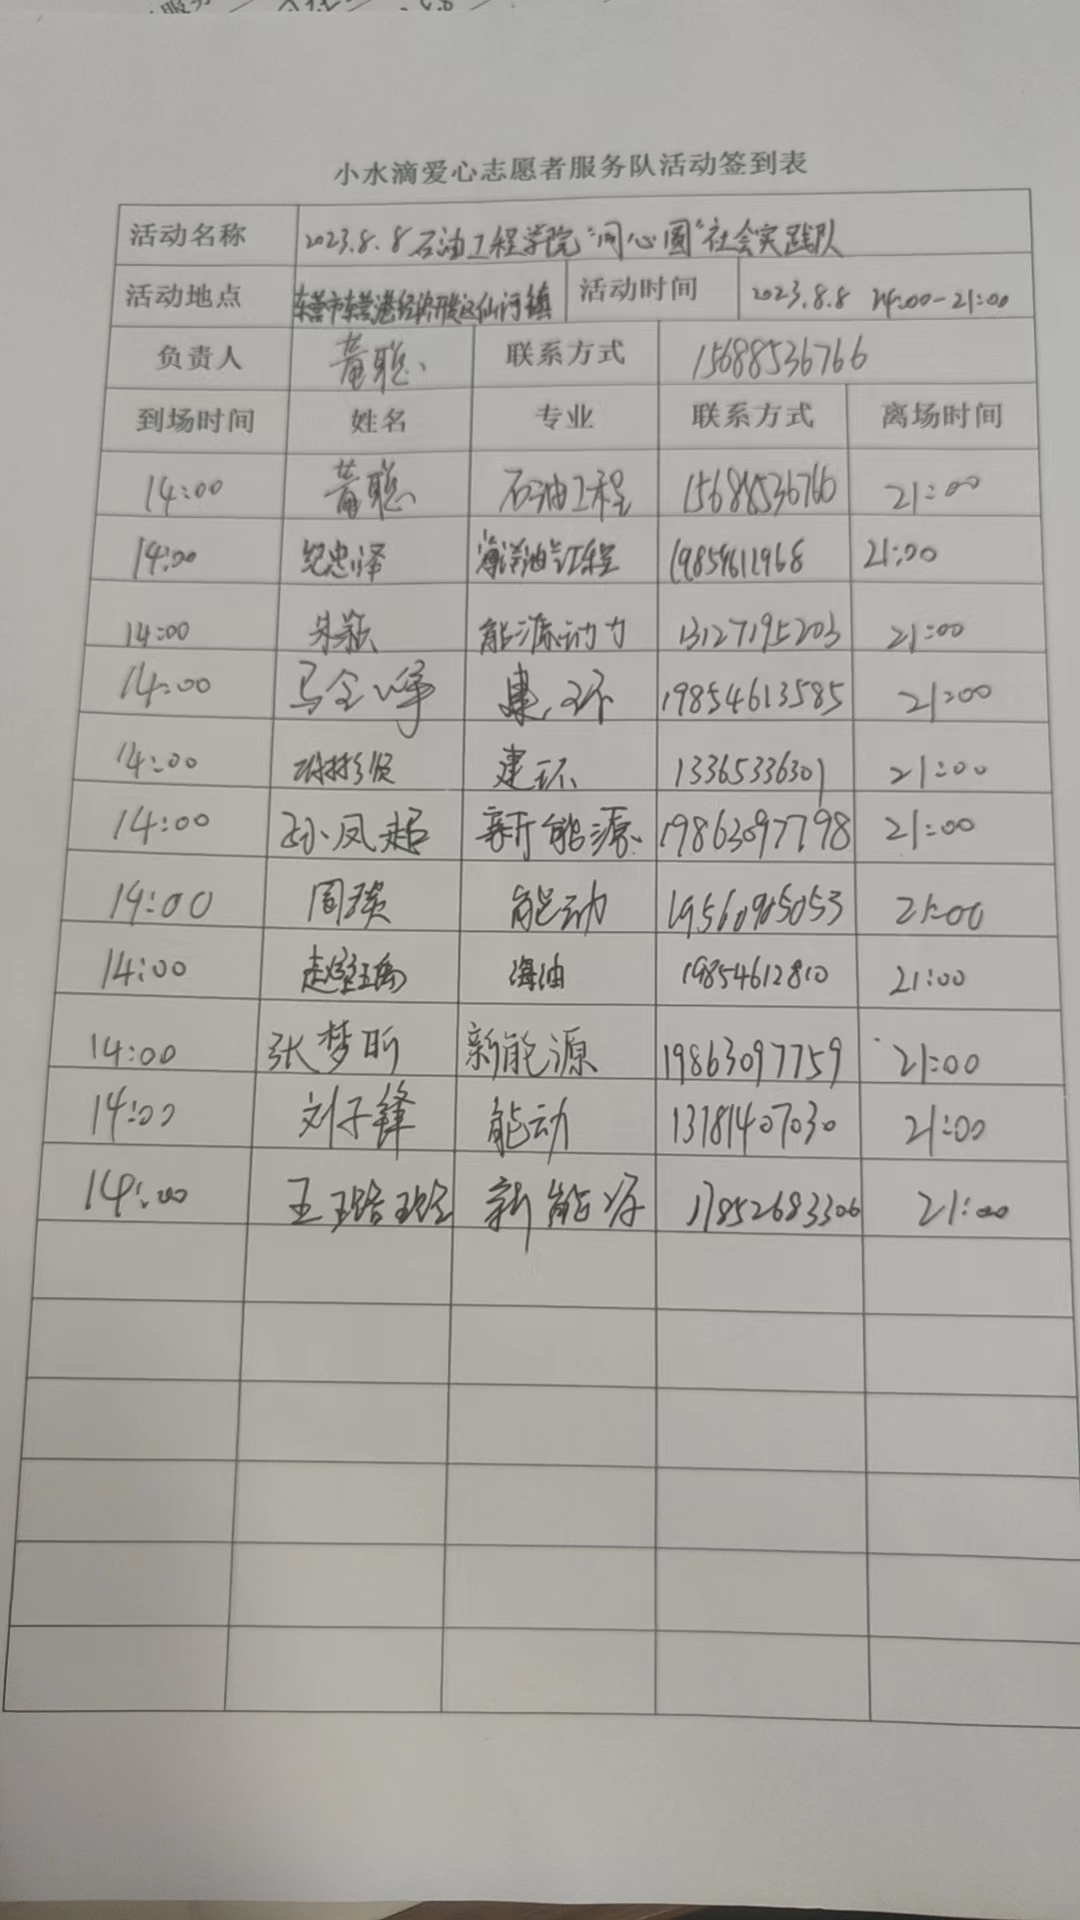 小水滴爱心志愿者服务队活动签到表
活动名称 2023.8.8 石油工程学院“同心圆”社会实践队
活动地点 东营市东营港经济开发区仙河镇 活动时间 2023.8.8 14:00-21:00
负责人 黄聪 联系方式 15688536766
到场时间 姓名 专业 联系方式 离场时间
14:00 黄聪 石油工程 15688536766 21:00
14:00 纪忠泽 海洋油气工程 19854611968 21:00
14:00 朱颖 能源动力 13127195203 21:00
14:00 马全峥 建环 19854613585 21:00
14:00 建环 13365336301 21:00
14:00 孙凤超 新能源 19863097798 21:00
14:00 周琰 能动 19560905053 21:00
14:00 海油 19854612810 21:00
14:00 张梦昕 新能源 19863097759 21:00
14:00 刘子锋 能动 13181407030 21:00
14:00 王璐璐 新能源 17852683306 21:00